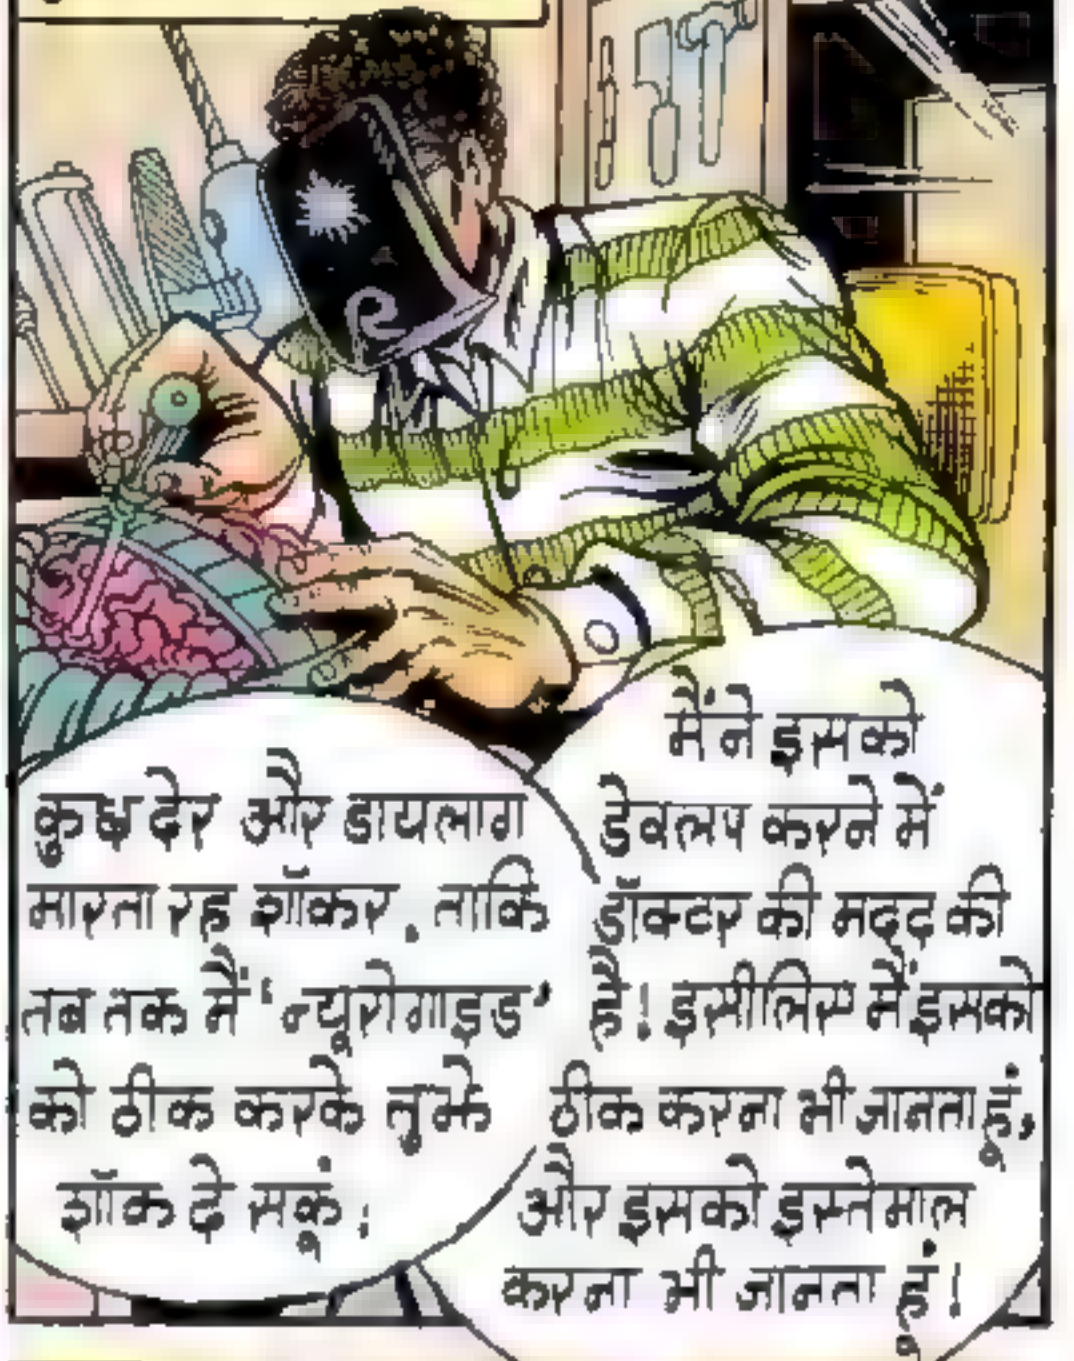 कुछ देर और डायलाग
मारता रह शॉकर, ताकि
तब तक मैं 'न्यूरोगाइड'
को ठीक करके तुझे
शॉक दे सकूं!
मैंने इसको
डेवलप करने में
डॉक्टर की मदद की
है! इसीलिए मैं इसको
ठीक करना भी जानता हूं,
और इसको इस्तेमाल
करना भी जानता हूं!